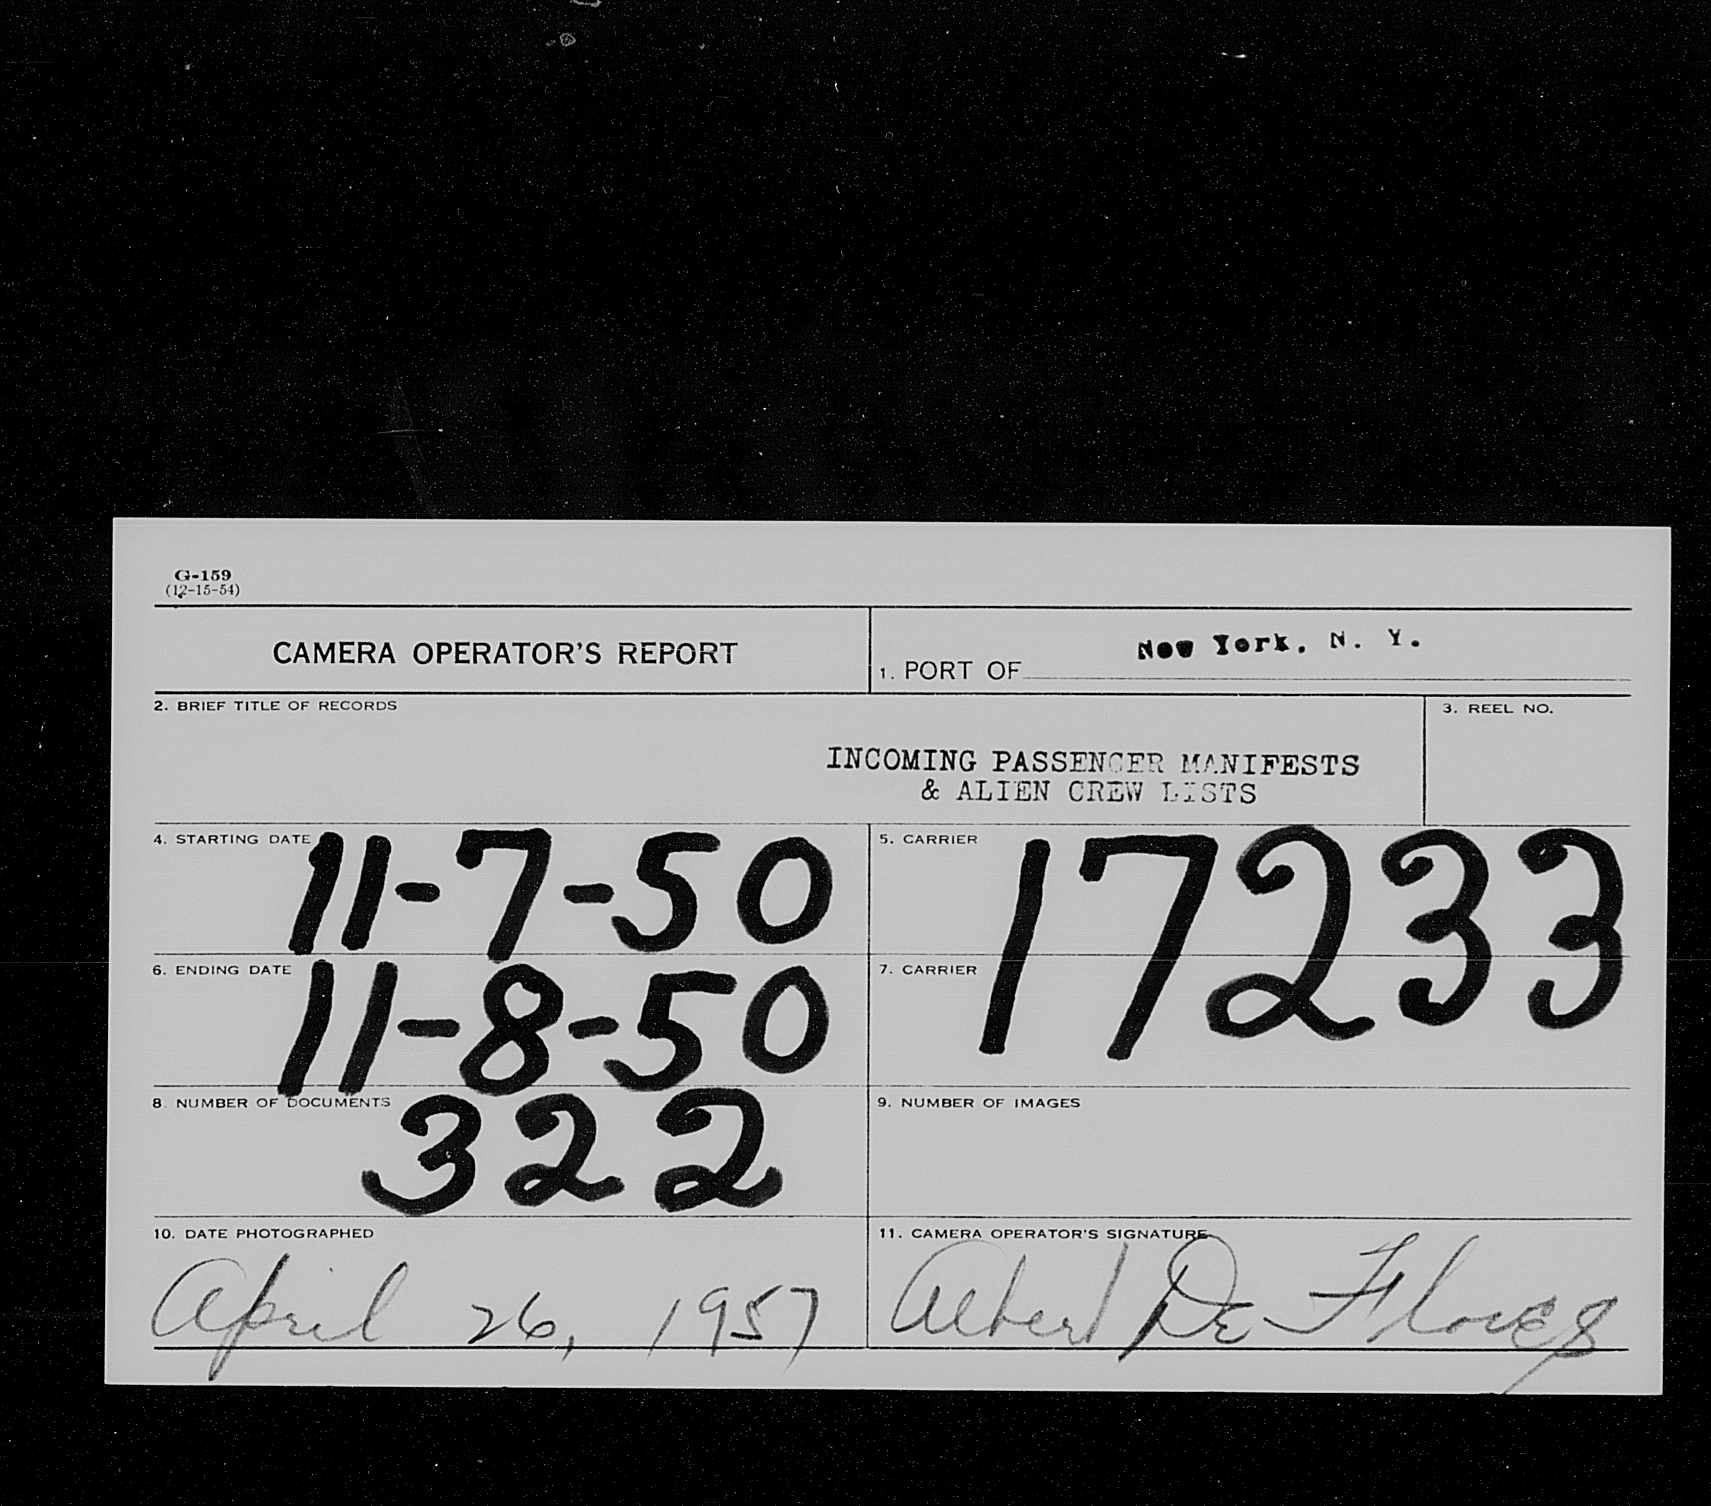 G-159
(12-15-54)
CAMERA OPERATOR'S REPORT
1. PORT OF New York, N. Y.
2. BRIEF TITLE OF RECORDS
3. REEL NO.
INCOMING PASSENGER MANIFESTS
& ALIEN CREW LISTS
4. STARTING DATE 11-7-50
5. CARRIER 17233
6. ENDING DATE 11-8-50
7. CARRIER
8. NUMBER OF DOCUMENTS 322
9. NUMBER OF IMAGES
10. DATE PHOTOGRAPHED
April 26, 1957
11. CAMERA OPERATOR'S SIGNATURE
Albert De Flores